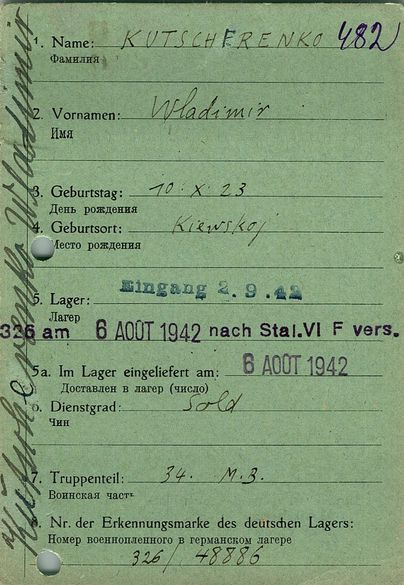 1. Name: KUTSCHERENKO 482
Фамилия
2. Vornamen: Wladimir
Имя
3. Geburtstag: 10. X. 23
День рождения
4. Geburtsort: Kiewskoj
Место рождения
Eingang 2. 9. 42
5. Lager:
Лагер
326 am 6 AOÛT 1942 nach Stal. VI F vers.
6 AOÛT 1942
5a. Im Lager eingeliefert am:
Доставлен в лагер (число)
6. Dienstgrad: Sold
Чин
7. Truppenteil: 34. M.B.
Воинская часть
8. Nr. der Erkennungsmarke des deutschen Lagers:
Номер военнопленного в германском лагере
326/ 48886
Kutscherenko Wladimir